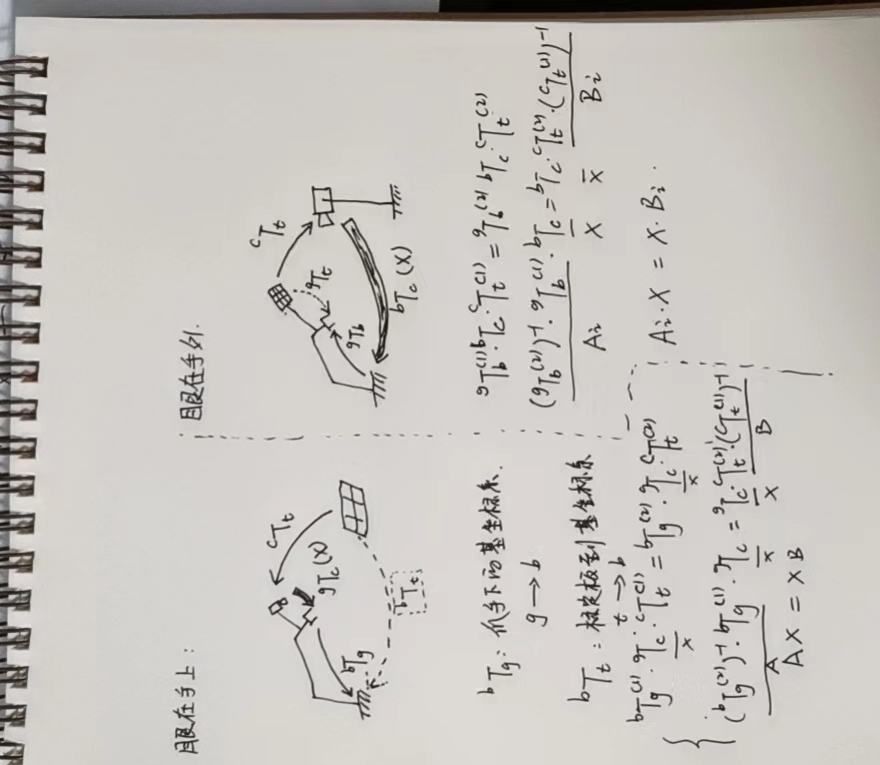 眼在手上：
ᶜTₜ
ᵍT_c(X)
ᵇT_g
ᵇTₜ
ᵇT_g：爪手下的基坐标系.
g → b
ᵇTₜ：标定板到基坐标系
t → b
ᵇT_g⁽¹⁾·ᵍT_c·ᶜTₜ⁽¹⁾ = ᵇT_g⁽²⁾·ᵍT_c·ᶜTₜ⁽²⁾
X X
(ᵇT_g⁽²⁾)⁻¹·ᵇT_g⁽¹⁾·ᵍT_c = ᵍT_c·ᶜTₜ⁽²⁾·(ᶜTₜ⁽¹⁾)⁻¹
A X X B
AX = XB
眼在手外.
ᶜTₜ
ᵍTₜ
ᵍT_b
ᵇT_c(X)
ᵍT_b⁽¹⁾·ᵇT_c·ᶜTₜ⁽¹⁾ = ᵍT_b⁽²⁾·ᵇT_c·ᶜTₜ⁽²⁾
(ᵍT_b⁽²⁾)⁻¹·ᵍT_b⁽¹⁾·ᵇT_c = ᵇT_c·ᶜTₜ⁽²⁾·(ᶜTₜ⁽¹⁾)⁻¹
Ai X X Bi
Ai·X = X·Bi.